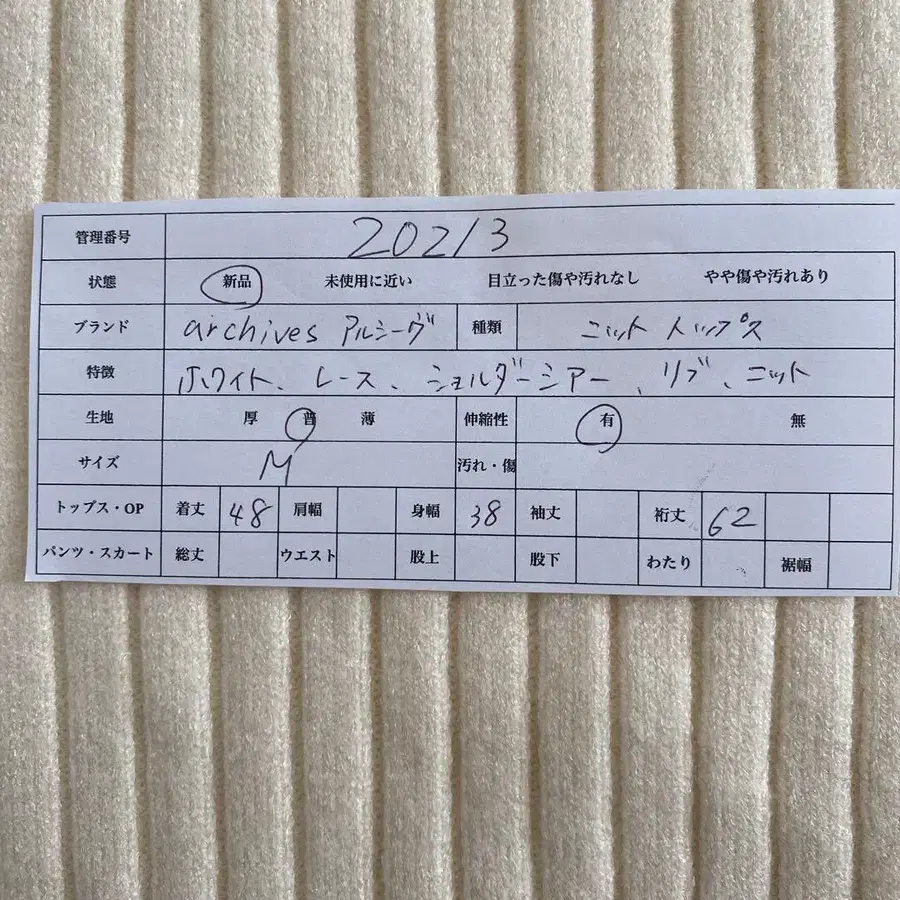 管理番号 20213
状態 新品 未使用に近い 目立った傷や汚れなし やや傷や汚れあり
ブランド archives アルシーヴ 種類 ニット トップス
特徴 ホワイト、レース、ショルダーシアー、リブ、ニット
生地 厚 普 薄 伸縮性 有 無
サイズ M 汚れ・傷
トップス・OP 着丈 48 肩幅 身幅 38 袖丈 裄丈 62
パンツ・スカート 総丈 ウエスト 股上 股下 わたり 裾幅